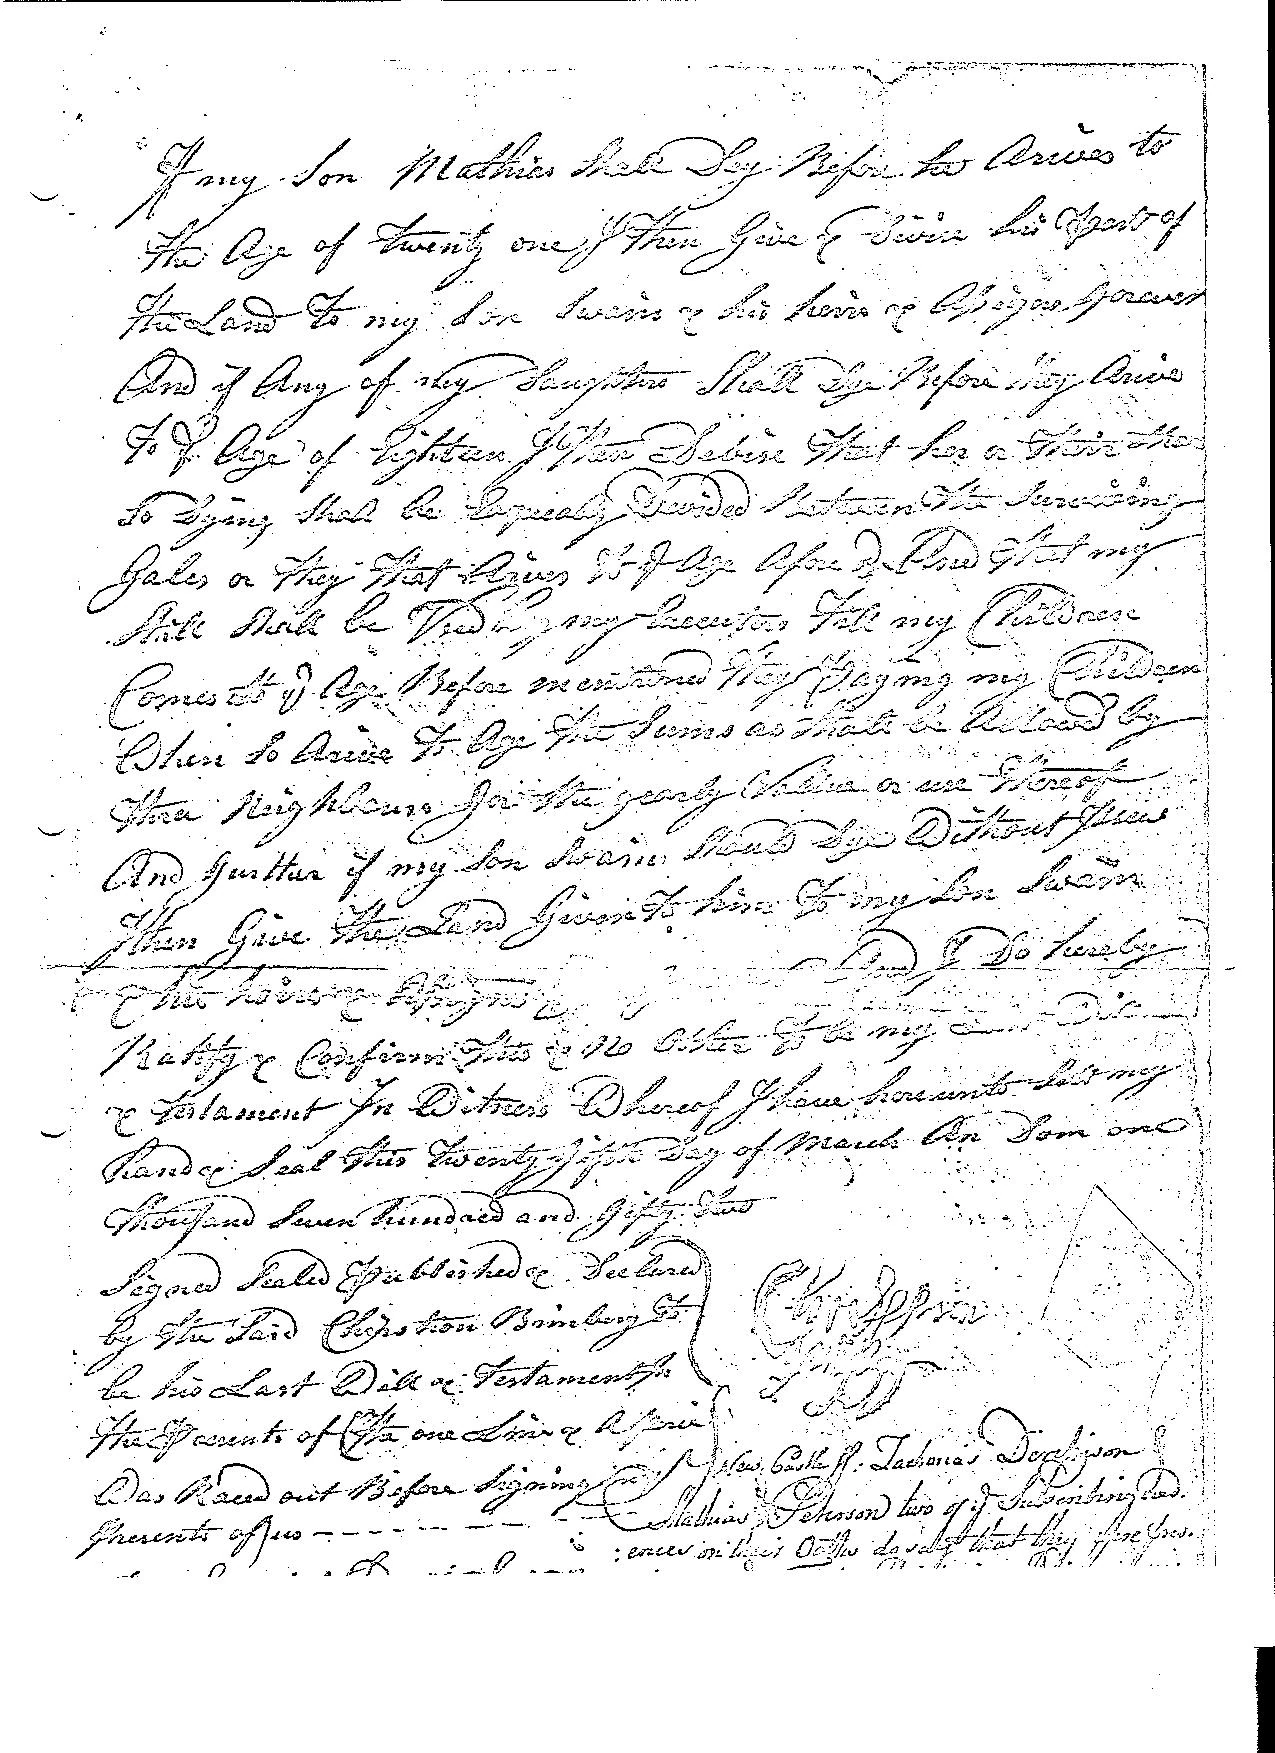 If my Son Mathias Shall Dey Before he Arives to
the Age of twenty one I then Give & Devise his Part of
the Land To my Son Swain & his heirs & Assigns forever
And if Any of my Daughters Shall Dye Before they Arive
To ye Age of Eighteen I then Devise That her or Their
So Dying Shall be Eequealy Devided Between the Surviving
Gales or they That Arives to ye Age Afore And That my
Still Shall be Used by my Executors Till my Children
Comes to ye Age Before mentioned They Paying my Children
When So Arive To Age the Sums as Shall be Allowd by
three Neighbours for the yearly Vallue or use thereof
And further if my Son Swain Should Dye Without Issue
I then Give the Land Given to him To my Son Swain
& his heirs & Assigns And I Do hereby
Ratify & Confirm this & No Other To be my Last Will
& testament In Witness Whereof I have hereunto Set my
hand & Seal this twenty fifth Day of March An Dom one
thousand Seven hundred and fifty two
Signed Sealed Published & Declared
by the Said Chirstion Brimberg To
be his Last Will & Testament In
the Presents of the one Line &
Was Raced out Before Signing in
Presents of us - - - - - -
New Castle ss. Zacharias Derickson
Mathias Peterson two of ye Subscribing Evid.
:ences on their Oaths do say that they